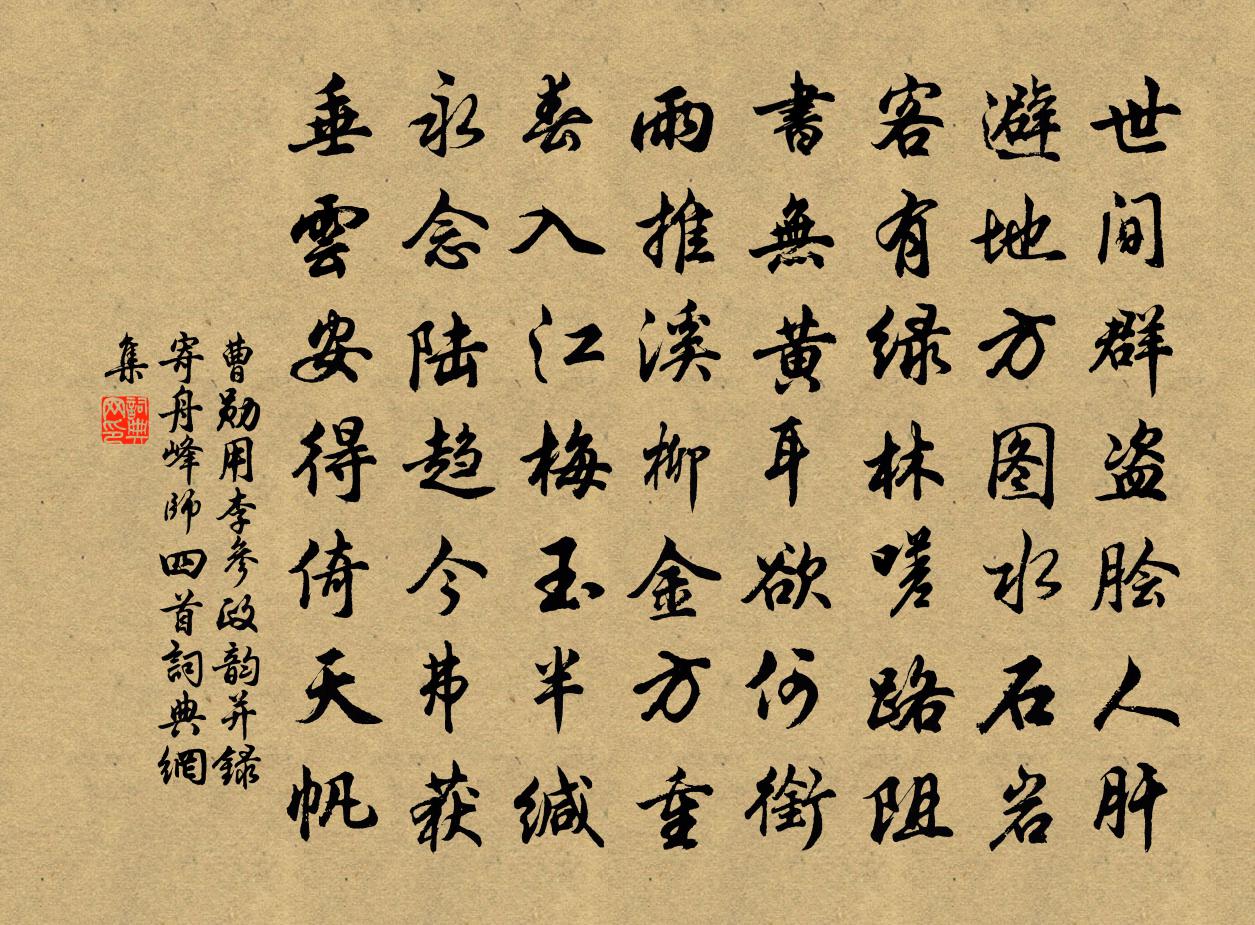 世间群盗脍人肝
避地方图水石岩
客有绿林嗟路阻
書無黃耳欲何銜
雨推溪柳金方重
春入江梅玉半缄
永念陆趋今弗获
垂雲安得倚天帆
曹勛用李參政韵并録
寄舟峰師四首詞典網
集
詞典
网印